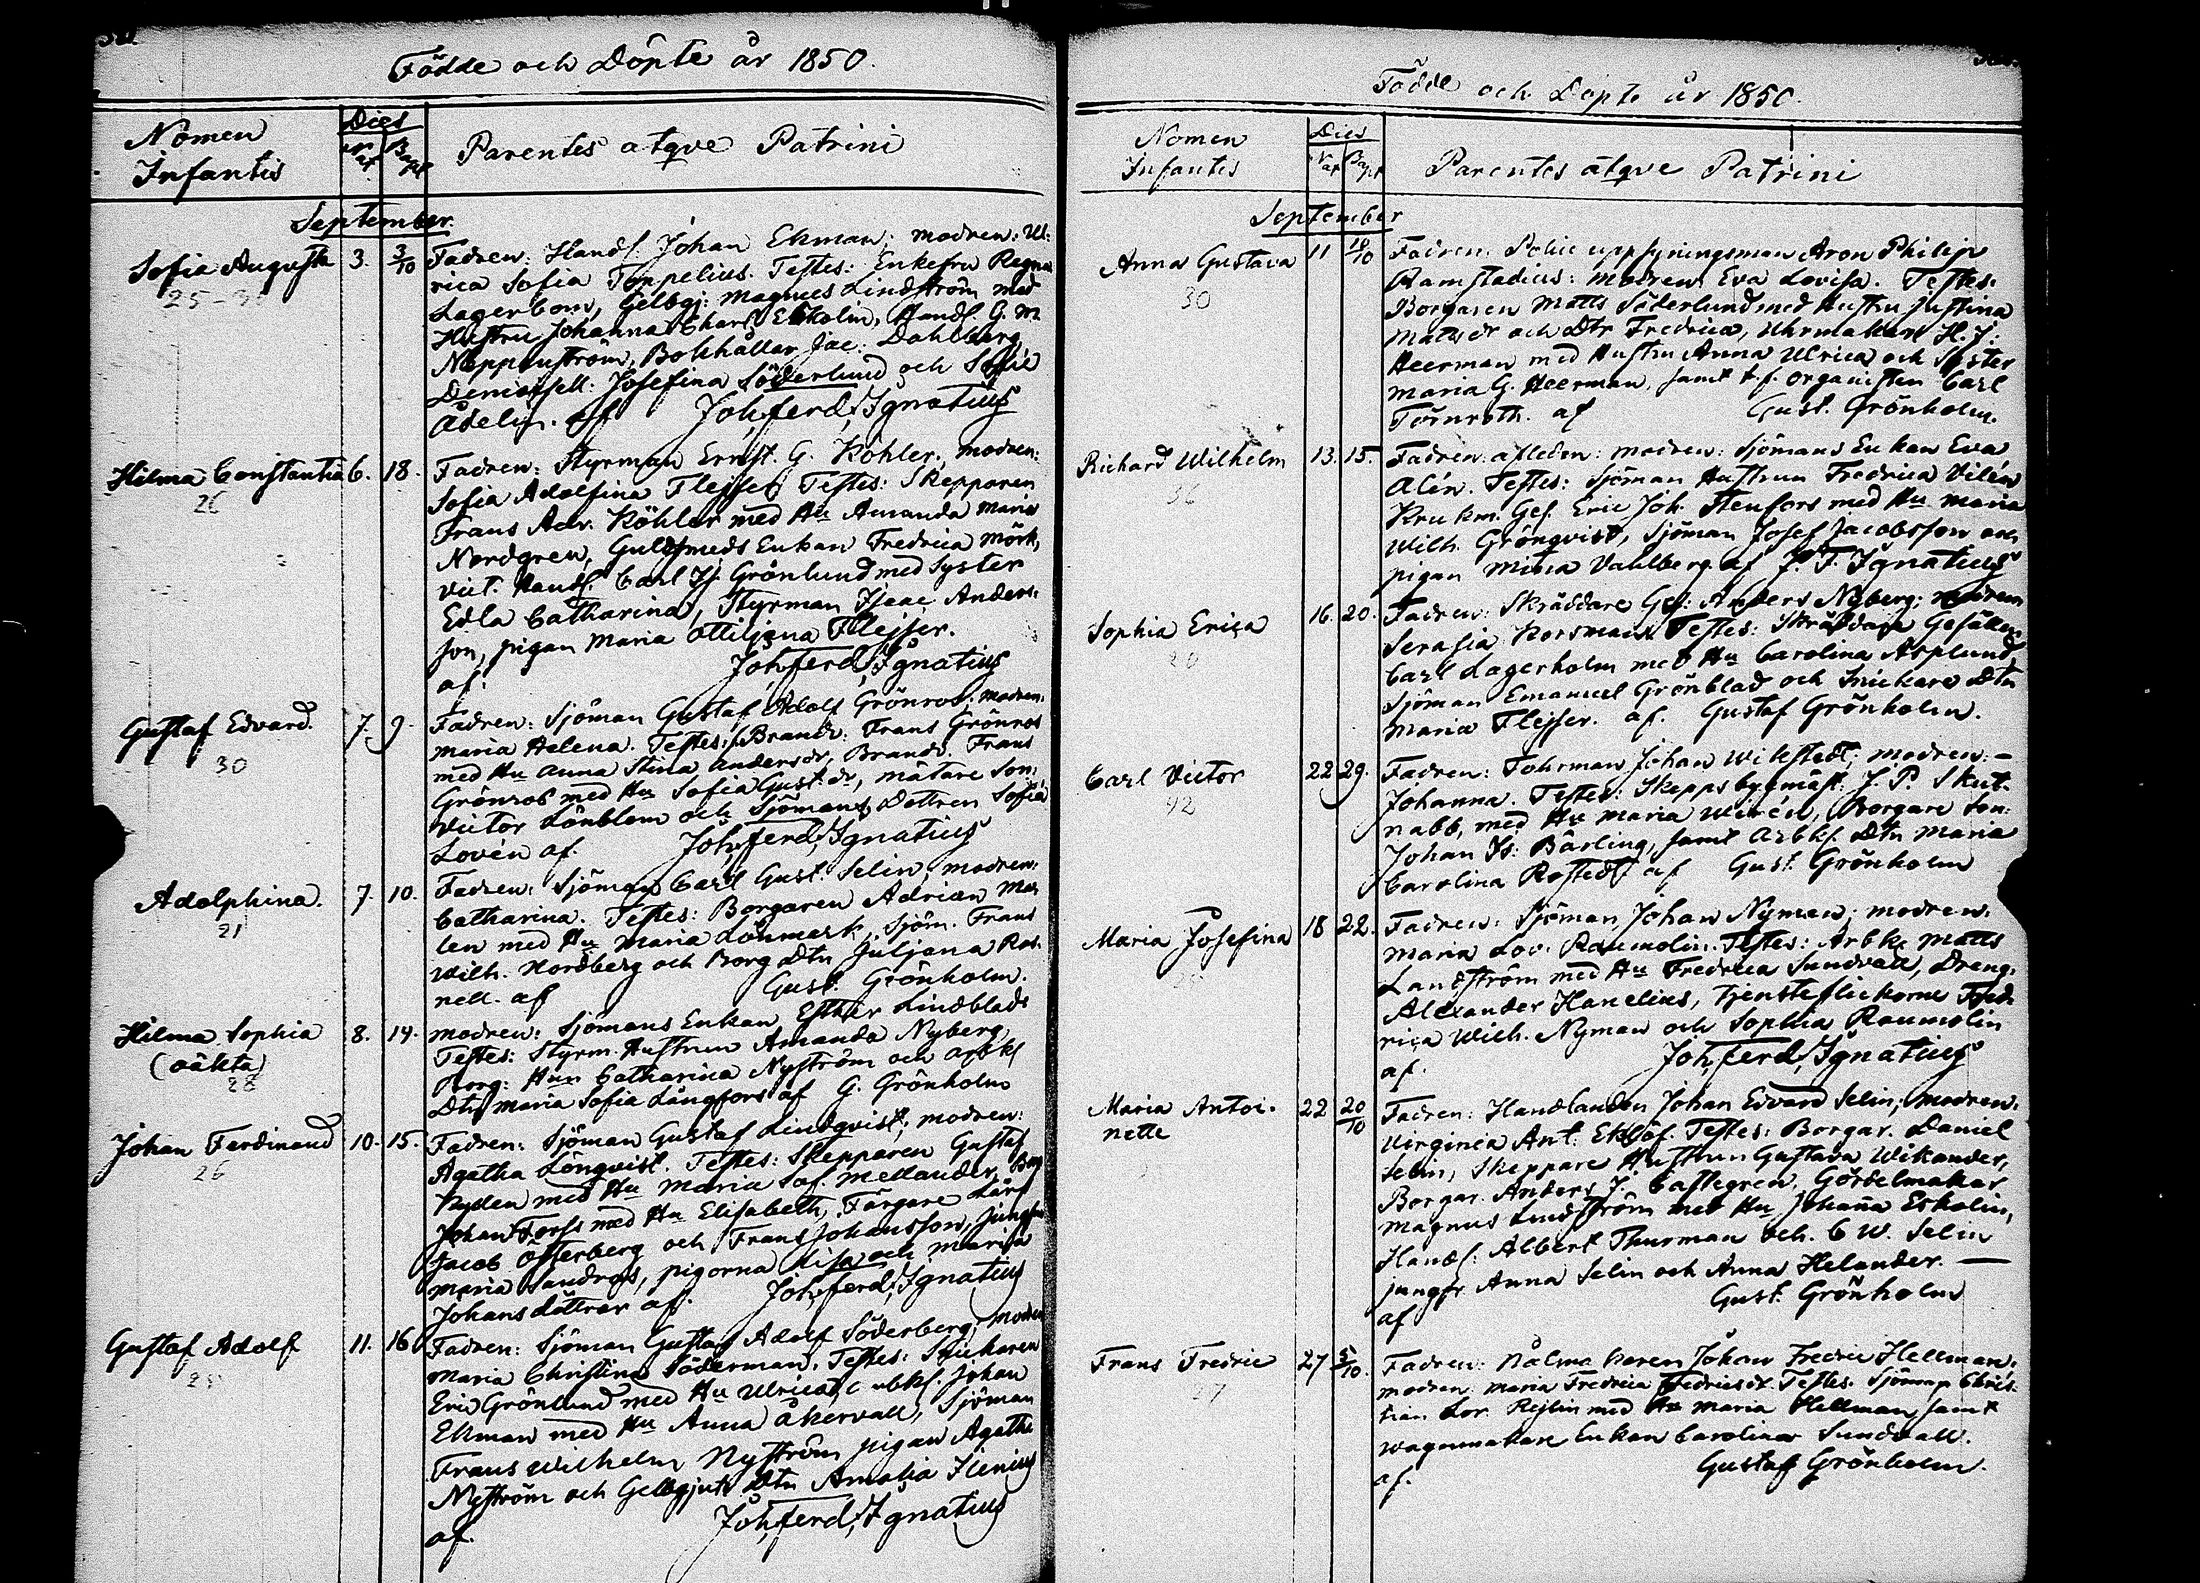 Födde och Döpte år 1850.
Nomen Infantis
Dies
Nat
Bapt
Parentes atqve Patrini
September.
Sofia Augusta 3. 3/10 Fadren: Handl. Johan Ekman; modren: Ul:
25-30
rica Sofia Toppelius. Testes: Enkefru Regina
Lagerbom, Gelbgj: Magnus Lindström med
Hustru Johanna Charl. Ekholin, Handl. G. M
Noppenström, Bokhållar Jac: Dahlberg,
Demoisell: Josefina Söderlund och Sofie
Adelin. af Joh. Ferd. Ignatius
Hilma Constantia 6. 18. Fadren: Styrman Ernst. G. Köhler, modren:
26
Sofia Adolfina Flejser Testes: Skepparen
Frans Adr. Köhler med Hu Amanda Maria
Nordgren, Guldsmeds Enkan Fredrica Mörk,
Vict. Handl. Carl Is. Grönlund med Syster
Edla Catharina, Styrman Isac Anders:
son, pigan Maria Ottiljana Flejser.
af. Joh. Ferd. Ignatius
Gustaf Edvard. 7. 9. Fadren: Sjöman Gustaf Adolf Grönros; modren:
30
Maria Helena. Testes: Brandv: Frans Grönros
med Hu Anna Stina Andersdr, Brandv. Frans
Grönros med Hu Sofia Gust:dr, mätare Son:
Victor Lönblom och Sjömans Dottren Sofia
Lovén af. Joh. Ferd. Ignatius
Adolphina. 7. 10. Fadren: Sjöman Carl Gust. Selin, modren:
21
Catharina. Testes: Borgaren Adrian
len med Hu Maria Lönmark, Sjöm. Frans
Wilh. Nordberg och Borg Dtn Juljana Ros:
nell. af Gust. Grönholm.
Hilma Sophia 8. 14. modren: Sjömans Enkan Esther Lindblads
(oäkta)
28
Testes: Styrm. Hustrun Amanda Nyberg,
Borg: Hun Catharina Nyström och arbkl
Dtr Maria Sofia Långfors af G. Grönholm
Johan Ferdinand 10. 15. Fadren: Sjöman Gustaf Lindqvist; modren:
26
Agatha Lönqvist. Testes: Skepparen Gustaf
Nyden med Hu Maria Sof. Mellander, Borg
Johan Forss med Hu Elisabeth, Färgare Lärl
Jacob Österberg och Frans Johansson, jungfr
Maria Sandros, pigorna Lisa och Maria
Johansdöttrar af. Joh. Ferd. Ignatius
Gustaf Adolf 11. 16 Fadren: Sjöman Gustaf Adolf Söderberg; modren
Maria Christina Söderman. Testes: Snickaren
Eric Grönlund med Hu Ulrica, arbkl. Johan
Ekman med Hu Anna Åkervall, Sjöman
Frans Wilhelm Nyström pigan Agatha
Nyström och Gelbgjut. Dtn Amalia Ilenius
af. Joh. Ferd. Ignatius
Födde och Döpte år 1850.
Nomen Infantis
Dies
Nat
Bapt
Parentes atqve Patrini
September
Anna Gustava 11 10/10 Fadren: Police uppsyningsman Aron Philip
30
Ramstadius: modren Eva Lovisa. Testes:
Borgaren Matts Söderlund med Hustru Justina
Matsdr och Dtr Fredrica, Uhrmakare H. J:
Heerman med Hustru Anna Ulrica och Syster
Maria G. Heerman, samt t. f. organisten Carl
Törnroth. af Gust. Grönholm.
Richard Wilhelm 13. 15. Fadren: afleden: modren: Sjömans Enkan Eva
36
Alén. Testes: Sjöman Hustrun Fredrica Vilén
Krukm. Ges. Eric Joh. Stenfors med Hu Maria
Wilh. Grönqvist, Sjöman Josef Jacobsson och
pigan Mina Vahlberg af J. F. Ignatius
Sophia Erica 16. 20. Fadren: Skräddare Ges: Anders Nyberg; modren
26
Serafia Korsman Testes: Skräddare Gesällen
Carl Lagerholm med Hu Carolina Asplund,
Sjöman Emanuel Grönblad och Snickare Dtn
Maria Flejser. af. Gustaf Grönholm.
Carl Victor 22 29. Fadren: Fohrman Johan Wikstedt; modren: –
42
Johanna. Testes: Skeppsbygmäst: J. P. Skut-
nabb, med Hu Maria Wirén, Borgare Son:
Johan Is: Bärling, samt Arbkl Dtn Maria
Carolina Rostedt af Gust. Grönholm
Maria Josefina 18 22. Fadren: Sjöman Johan Nyman; modren:
Maria Lov. Raumolin. Testes: Arbkl Matts
Landström med Hu Fredrica Sundvall, Dreng:
Alexander Hanelius, Tjensteflickorne Fred:
rica Wilh. Nyman och Sophia Raumolin
af. Joh. Ferd. Ignatius
Maria Antoi- 22 20/10 Fadren: Handlanden Johan Edvard Selin; modren:
nette
Virginia Ant. Eklöf. Testes: Borgar. Daniel
Selin, Skeppare Hustrun Gustava Wikander,
Borgar. Anders J. Castegren, Gördelmakar
Magnus Lindström med Hu Johanna Eskolin,
Handl. Albert Thurman och. C W. Selin
jungfr Anna Selin och Anna Helander. —
af Gust. Grönholm
Frans Fredric 27 5/10. Fadren: Nålmakaren Johan Fredric Hellman:
27
modren: Maria Fredrica Fredricsdr. Testes: Sjöman Chris:
tian Lor. Rejlin med Hu Maria Hellman, samt
wagnmakare Enkan Carolina Sundvall.
af. Gustaf Grönholm.